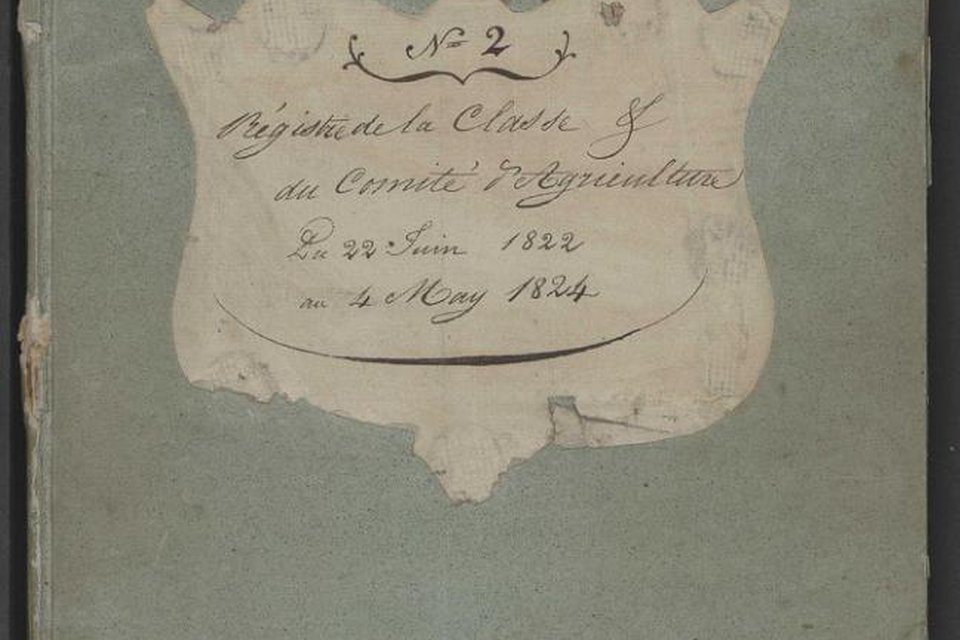 N° 2
Régistre de la Classe &
du Comité d'Agriculture
Du 22 Juin 1822
au 4 May 1824